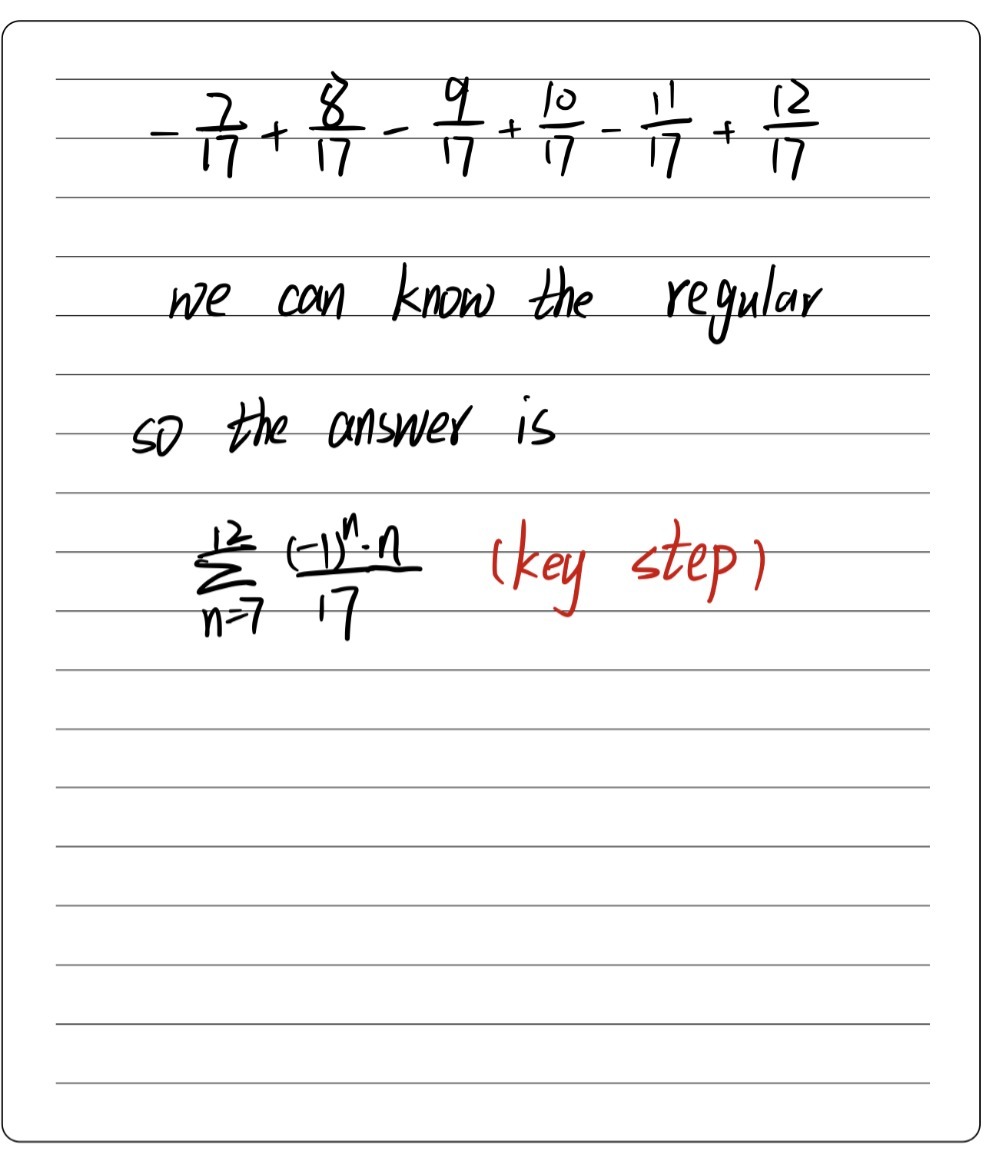 - 7/17 + 8/17 - 9/17 + 10/17 - 11/17 + 12/17
we can know the regular
so the answer is
∑_{n=7}^{12} (-1)^n·n / 17 (key step)